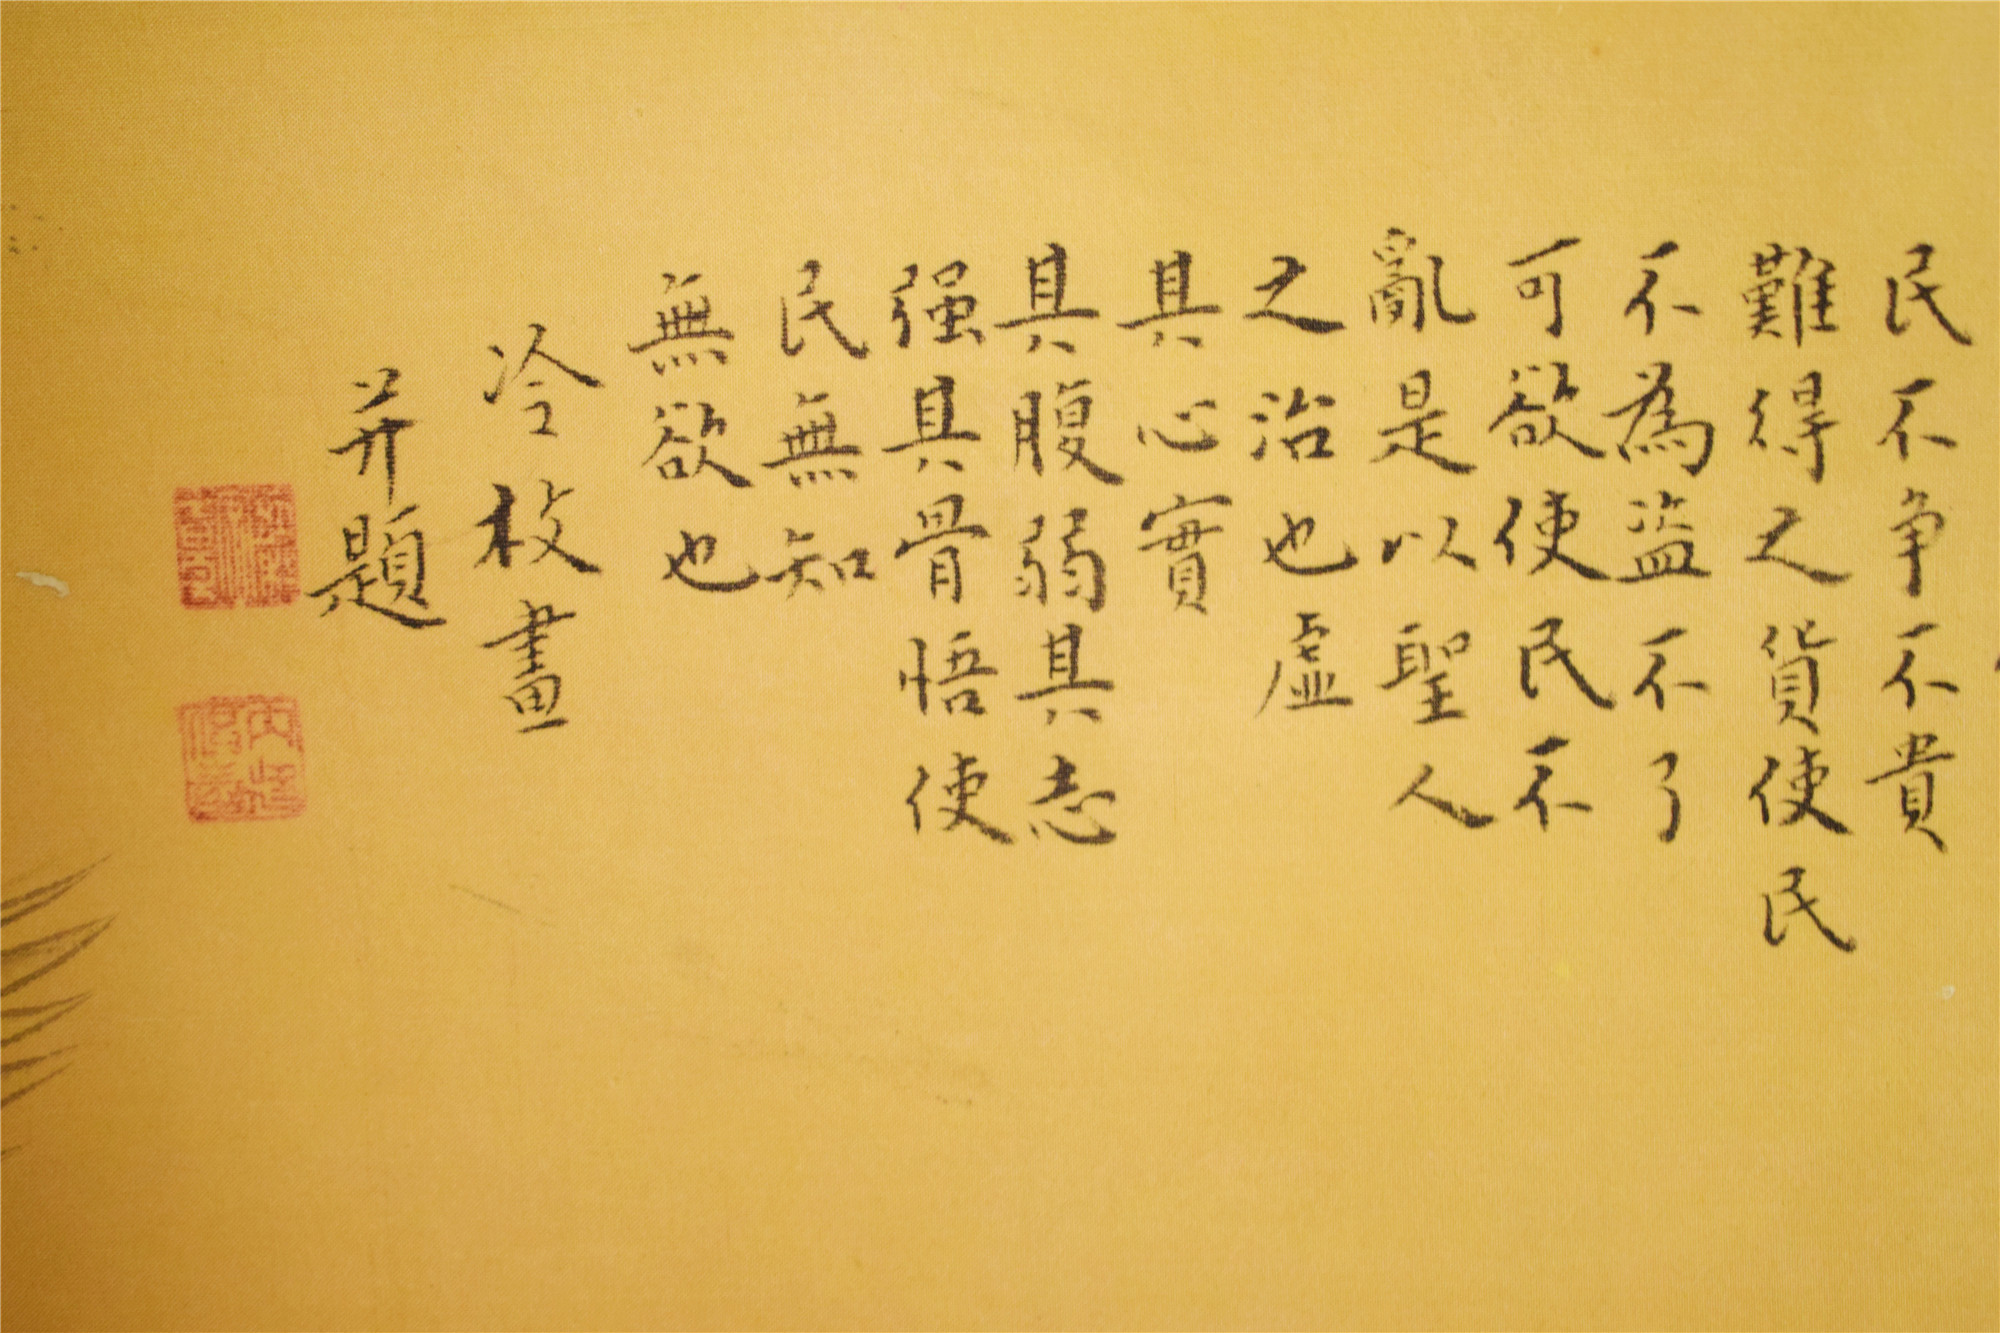 民不争不貴
難得之貨使民
不為盜不了
可欲使民不
亂是以聖人
之治也虛
其心實
其腹弱其志
强其骨悟使
民無知
無欲也
冷枚畫
并題